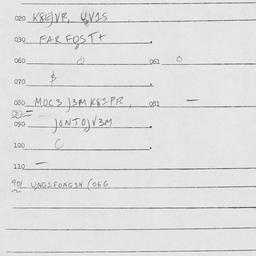 020 K8EJVR, UV1S
030 FAR FOST+
060 0 061 0
070
080 MOC3 J3M K81PR, 081 —
090 JONTOJV3M
100 0
110 —
901 UNG1FONG1N (06G